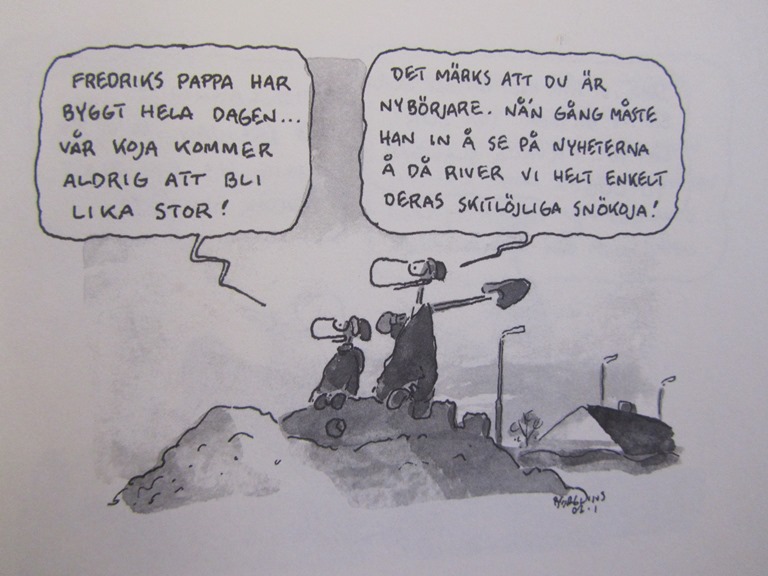 FREDRIKS PAPPA HAR
BYGGT HELA DAGEN...
VÅR KOJA KOMMER
ALDRIG ATT BLI
LIKA STOR!
DET MÄRKS ATT DU ÄR
NYBÖRJARE. NÅ'N GÅNG MÅSTE
HAN IN Å SE PÅ NYHETERNA
Å DÅ RIVER VI HELT ENKELT
DERAS SKITLÖJLIGA SNÖKOJA!